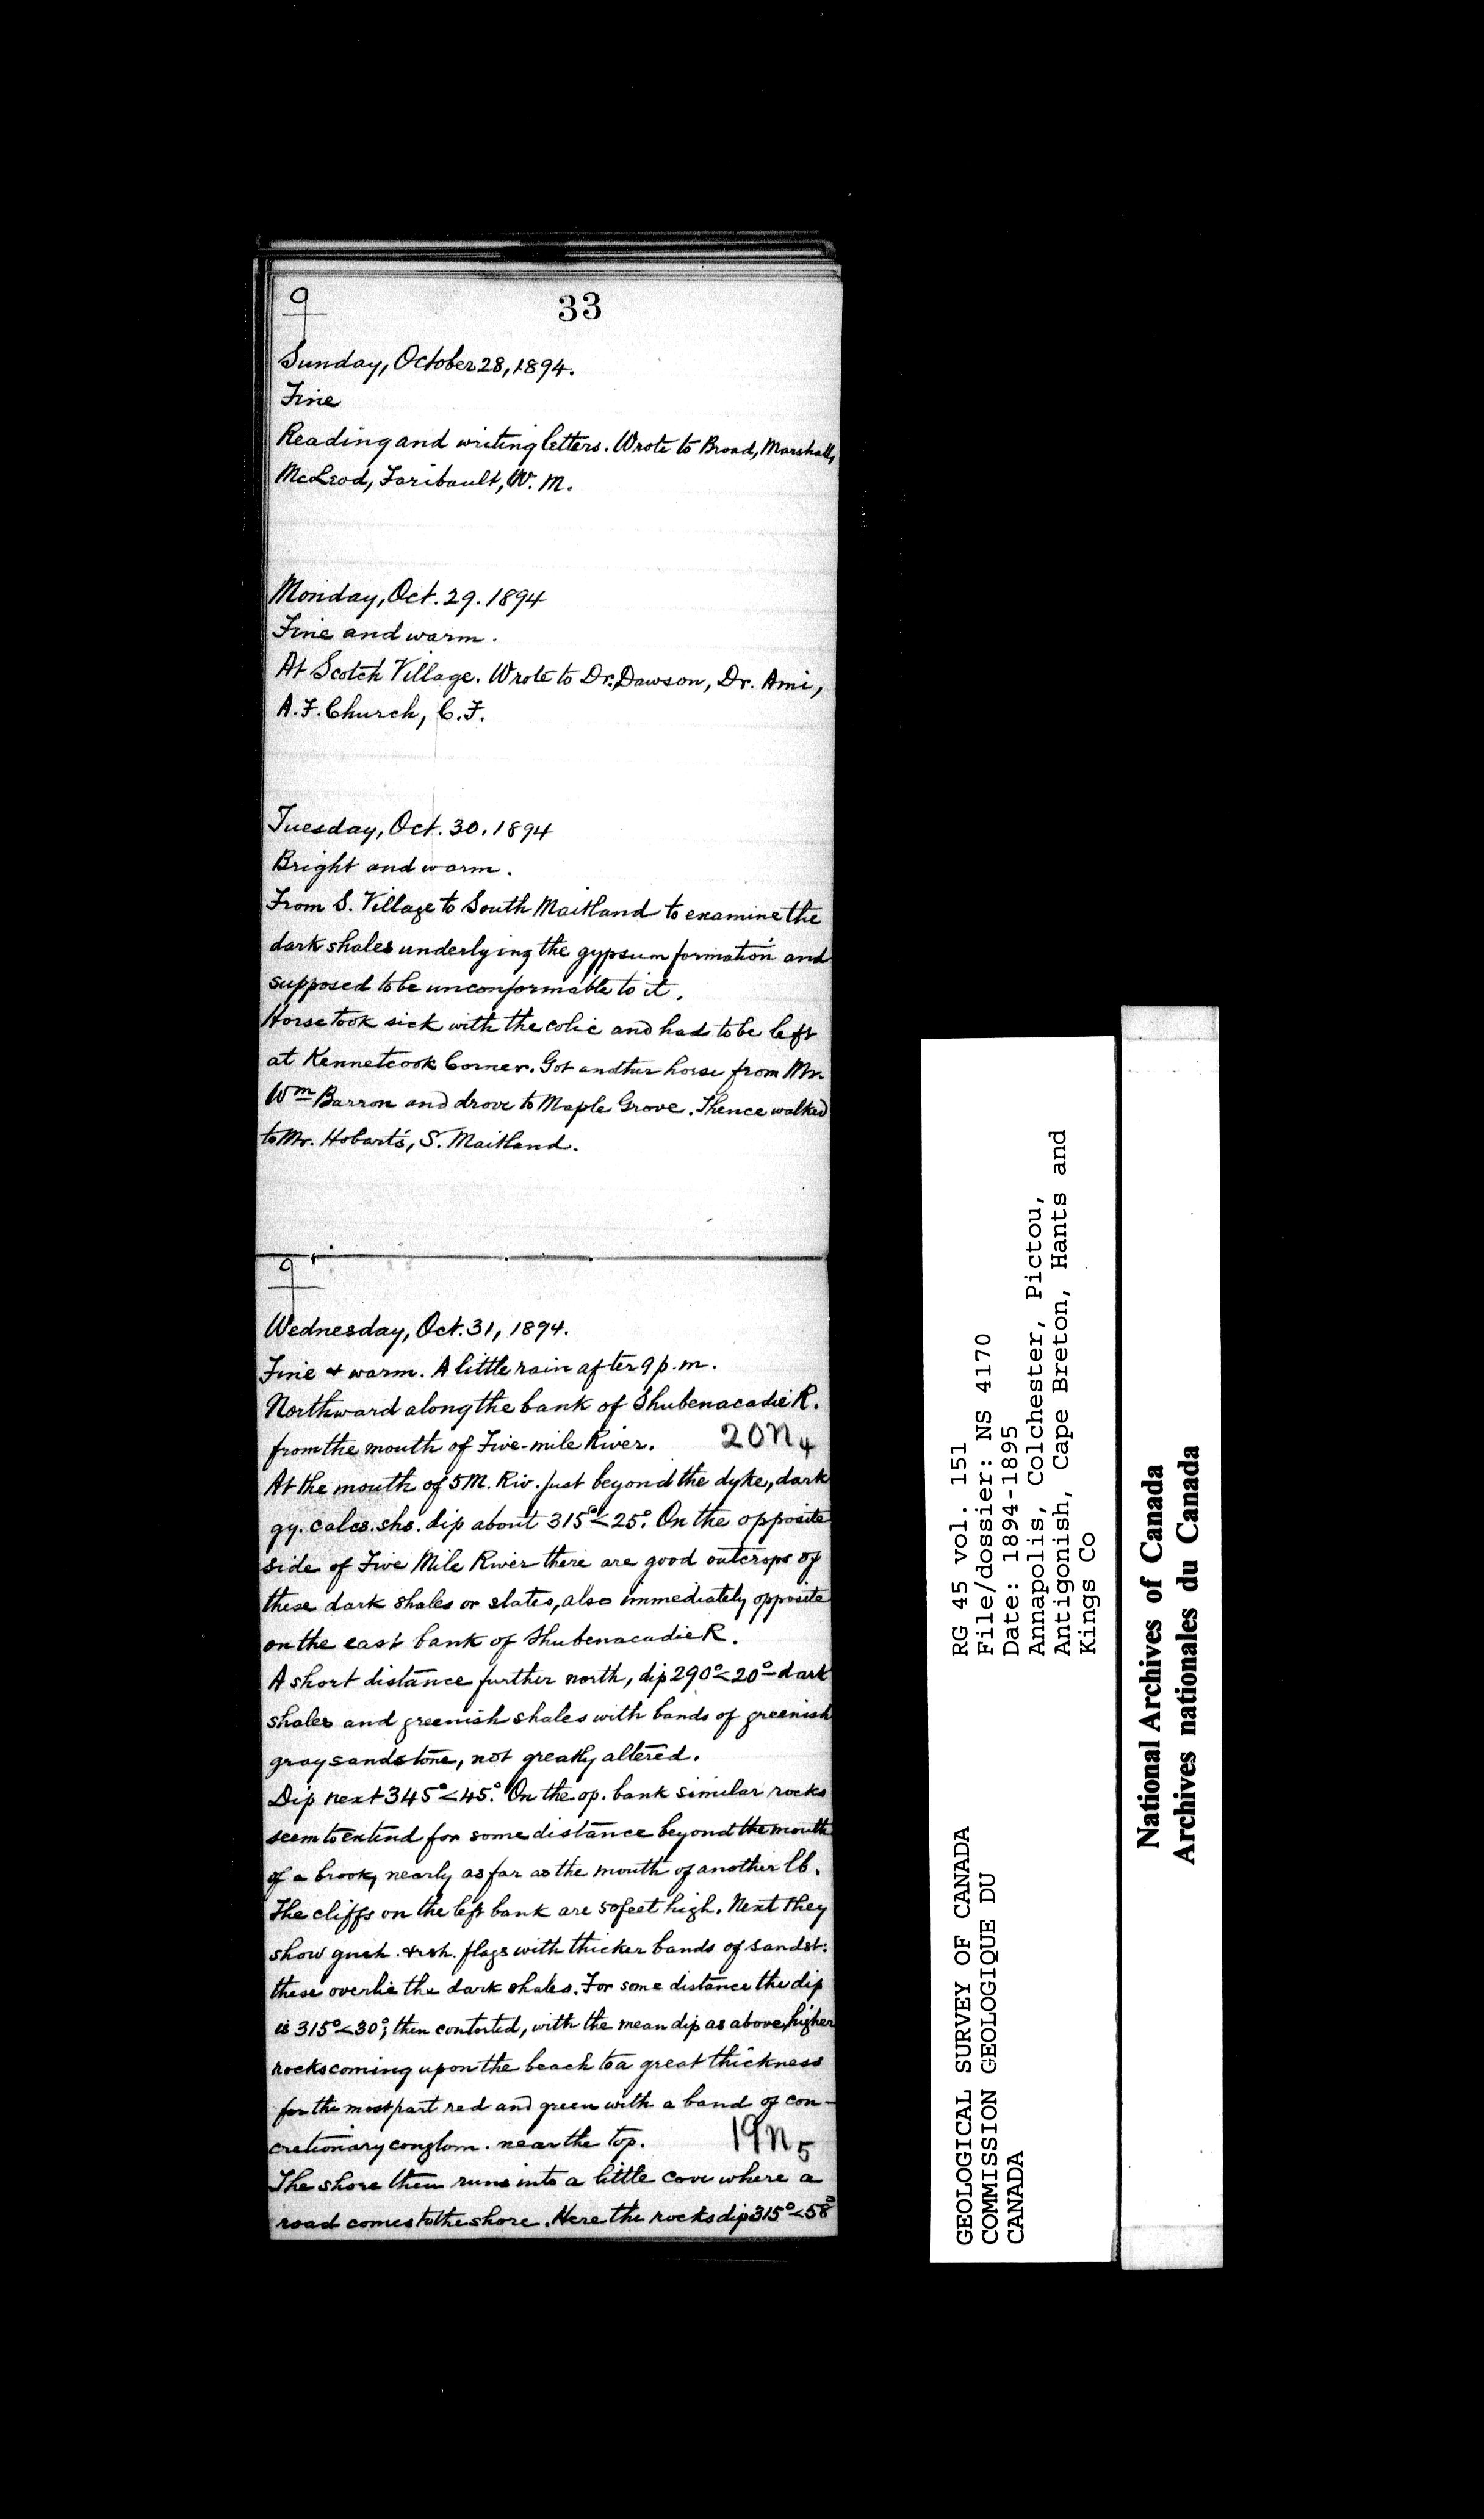 9
33
Sunday, October 28, 1894.
Fine
Reading and writing letters. Wrote to Broad, Marshall,
McLeod, Faribault, W. M.
Monday, Oct. 29. 1894
Fine and warm.
At Scotch Village. Wrote to Dr. Dawson, Dr. Ami,
A. F. Church, C. F.
Tuesday, Oct. 30. 1894
Bright and warm.
From S. Village to South Maitland to examine the
dark shales underlying the gypsum formation and
supposed to be unconformable to it.
Horse took sick with the colic and had to be left
at Kennetcook Corner. Got another horse from Mr.
Wm Barron and drove to Maple Grove. Thence walked
to Mr. Hobart's, S. Maitland.
9
Wednesday, Oct. 31, 1894.
Fine & warm. A little rain after 9 p.m.
Northward along the bank of Shubenacadie R.
from the mouth of Five-mile River. 20N4
At the mouth of 5 M. Riv. just beyond the dyke, dark
gy. calcs. shs. dip about 315°<25°. On the opposite
side of Five Mile River there are good outcrops of
these dark shales or slates, also immediately opposite
on the east bank of Shubenacadie R.
A short distance further north, dip 290°<20°-dark
shales and greenish shales with bands of greenish
gray sandstone, not greatly altered.
Dip next 345°<45°. On the op. bank similar rocks
seem to extend for some distance beyond the mouth
of a brook, nearly as far as the mouth of another lb.
The cliffs on the left bank are 50 feet high. Next they
show gnsh. & rsh. flags with thicker bands of sandst:
these overlie the dark shales. For some distance the dip
is 315°<30°; then contorted, with the mean dip as above, higher
rocks coming upon the beach to a great thickness
for the most part red and green with a band of con-
cretionary conglom. near the top. 19N5
The shore then runs into a little cove where a
road comes to the shore. Here the rocks dip 315°<58°
GEOLOGICAL SURVEY OF CANADA
COMMISSION GEOLOGIQUE DU
CANADA
RG 45 vol. 151
File/dossier: NS 4170
Date: 1894-1895
Annapolis, Colchester, Pictou,
Antigonish, Cape Breton, Hants and
Kings Co
National Archives of Canada
Archives nationales du Canada